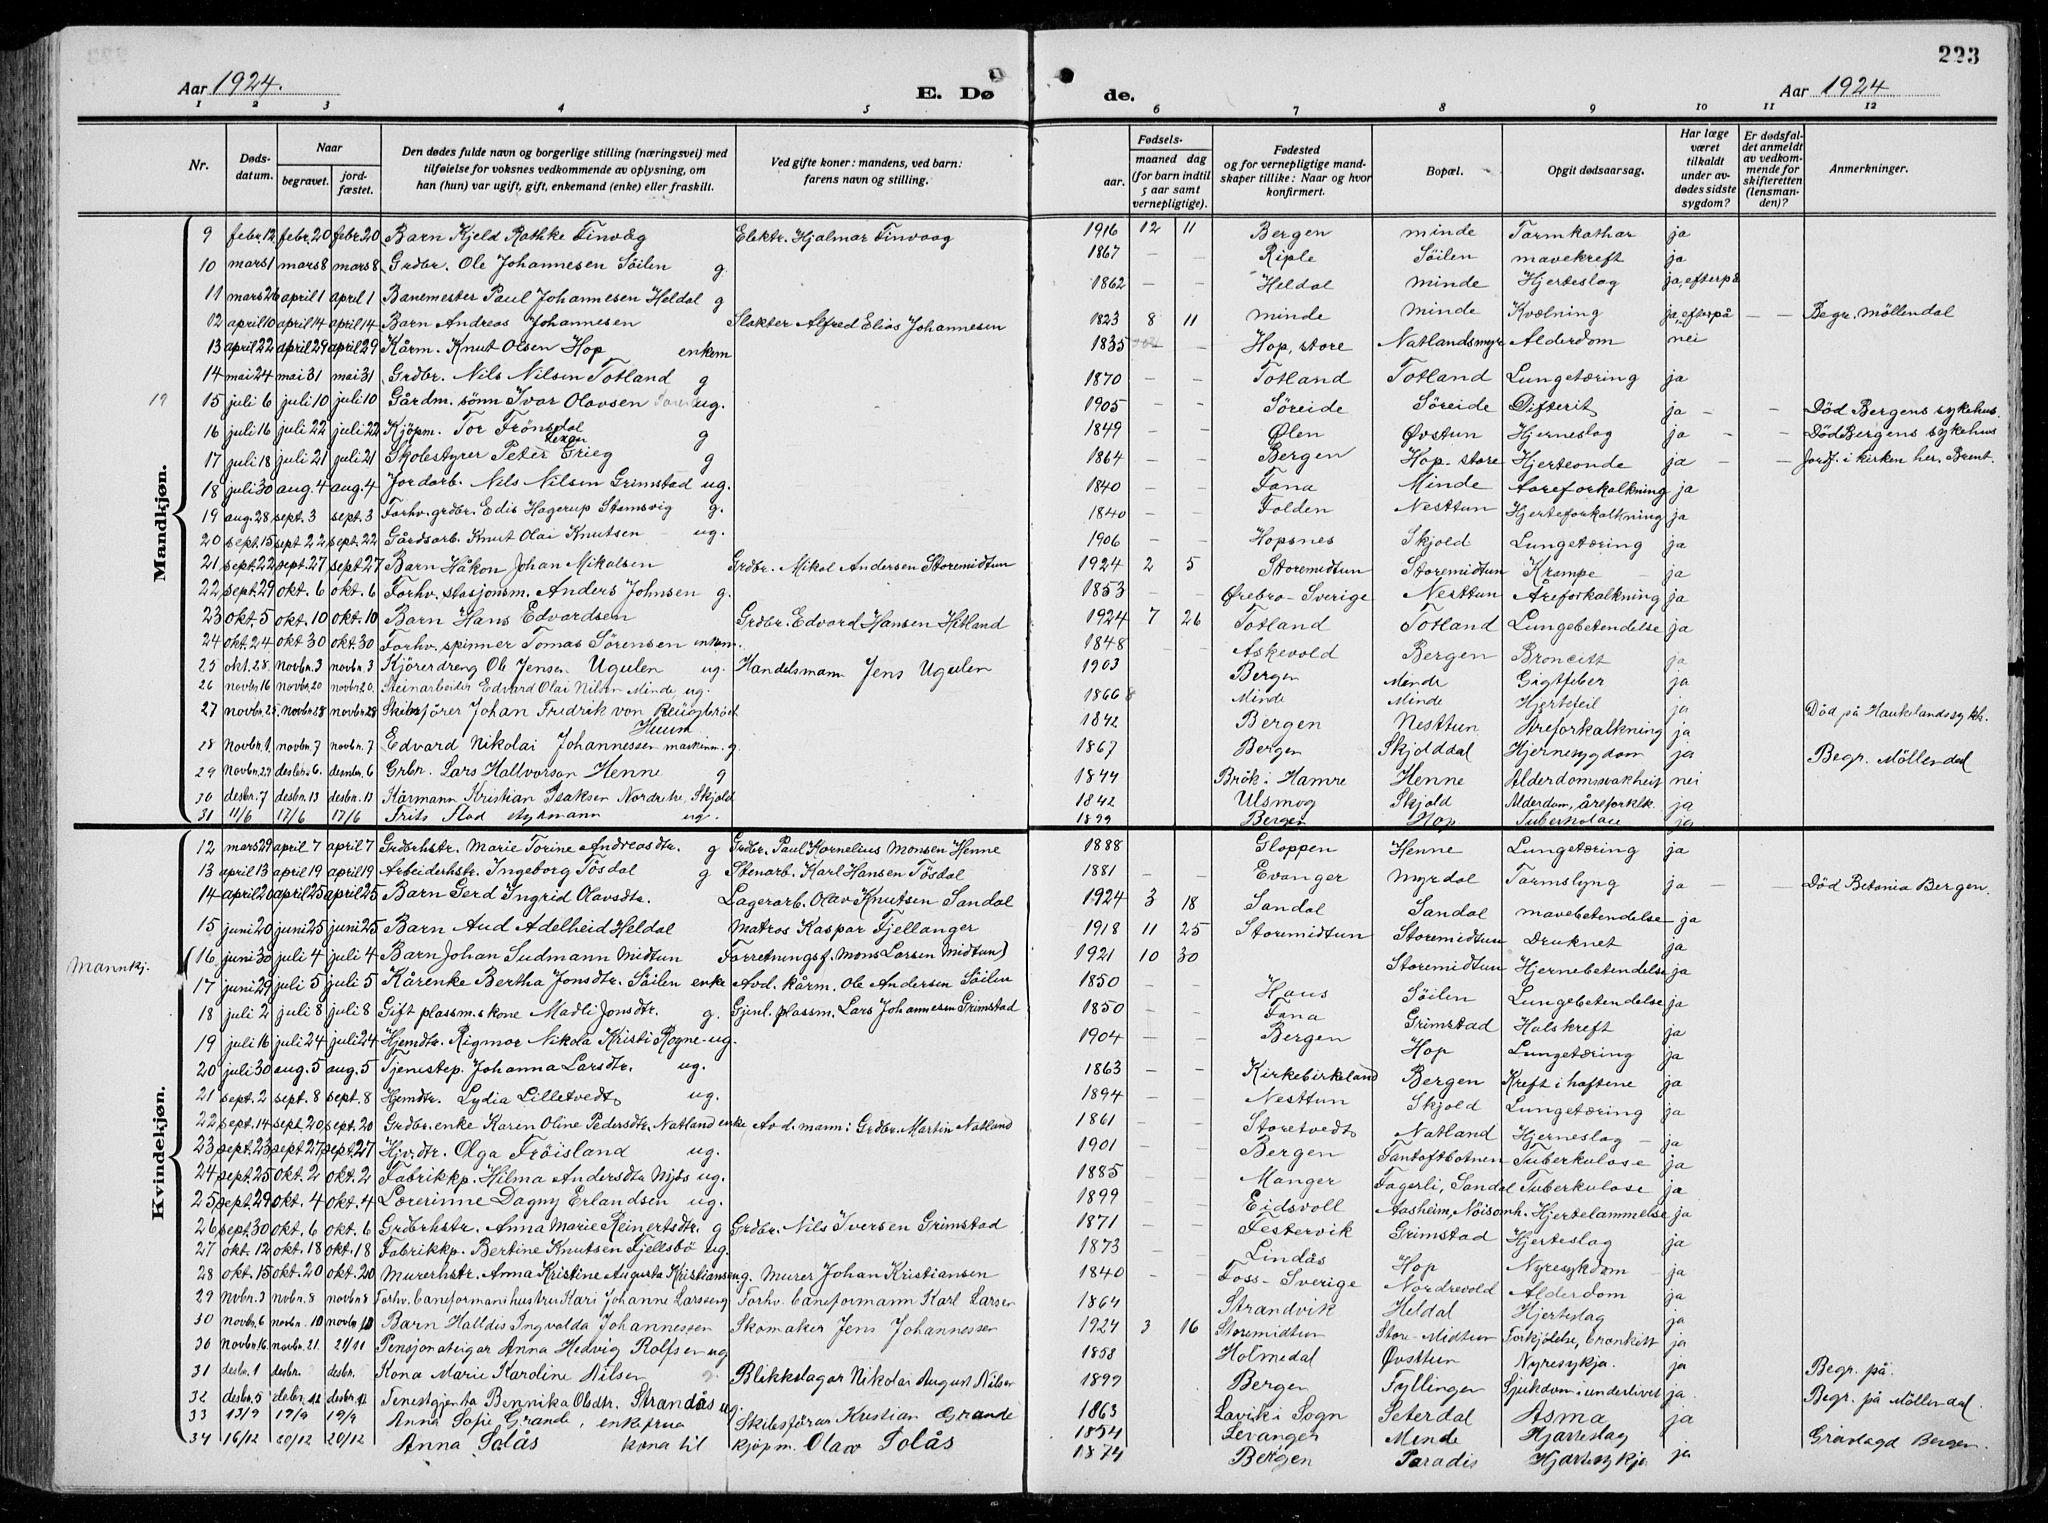 223
Aar 1924. E. Dø de. Aar 1924
1 2 3 4 5 6 7 8 9 10 11 12
Nr. Døds-datum. Naar begravet. jord-fæstet. Den dødes fulde navn og borgerlige stilling (næringsvei) med tilføielse for voksnes vedkommende av oplysning, om han (hun) var ugift, gift, enkemand (enke) eller fraskilt. Ved gifte koner: mandens, ved barn: farens navn og stilling. Fødsels- aar. maaned dag (for barn indtil 5 aar samt vernepligtige). Fødested og for vernepligtige mand-skaper tillike: Naar og hvor konfirmert. Bopæl. Opgit dødsaarsag. Har læge været tilkaldt under av-dødes sidste sygdom? Er dødsfal-det anmeldt av vedkom-mende for skifteretten (lensman-den)? Anmerkninger.
Mandkjøn.
9 febr.12 febr.20 febr.20 Barn Kjeld Rothke Tinvåg Elektr. Hjalmar Tinvaag 1916 12 11 Bergen minde Tarmkathar ja
10 mars1 mars8 mars8 Grdbr. Ole Johannesen Söilen g. 1867 — — Riple Söilen mavekreft ja
11 mars26 april1 april1 Banemester Paul Johannesen Heldal g 1862 — — Heldal minde Hjerteslag ja, efterpå
12 april10 april14 april14 Barn Andreas Johannesen Slakter Alfred Elias Johannesen 1823 8 11 minde minde Kvælning ja, efterpå — — Begr. Möllendal
13 april22 april29 april29 Kårm. Knut Olsen Hop enkem 1835 — Hop, store Natlandsmyr Alderdom nei
14 mai24 mai31 mai31 Grdbr. Nils Nilsen Totland g 1870 — — Totland Totland Lungetæring ja
19 15 juli6 juli10 juli10 Gårdm. sönn Ivar Olavsen ug. 1905 — — Söreide Söreide Difterit ja — — Död Bergens sykehus.
16 juli16 juli22 juli22 Kjöpm. Tor Frönsdal g 1849 — — Ølen Øvstun Hjerneslag ja — — Död Bergens sykehus
17 juli18 juli21 juli21 Skolestyrer Peter Lexau Grieg g 1864 — — Bergen Hop-store Hjerteonde ja — — Jordf. i kirken her. Brent.
18 juli30 aug.4 aug.4 Jordarb. Nils Nilsen Grimstad ug. 1840 — — Fana Minde Aareforkalkning ja
19 aug.28 sept.3 sept.3 Forhv. grdbr. Edis Hagerup Stamsvig g. 1840 — — Folden Nesttun Hjerteforkalkning ja
20 sept.15 sept22 sept.22 Gårdsarb. Knut Olai Knutsen — ug. 1906 — — Hopsnes Skjold Lungetæring ja
21 sept.22 sept.27 sept27 Barn Håkon Johan Mikalsen Grdbr. Mikal Andersen Storemidtun 1924 2 5 Storemidtun Storemidtun Krampe — ja
22 sept.29 okt.6 okt.6 Forhv. stasjonsm. Anders Johnsen g. 1853 — — Ørebro-Sverige Nesttun Åreforkalkning ja
23 okt.5 okt.10 okt.10 Barn Hans Edvardsen Grdbr. Edvard Hansen Hetland 1924 7 26 Totland Totland Lungebetendelse ja
24 okt.24 okt30 okt.30 Forhv. spinner Tomas Sörensen enkem. 1848 — — Askevold Bergen Broncitt ja
25 okt.28. novbr.3 novbr.3 Kjörerdreng Ole Jensen Ugulen ug. Handelsmann Jens Ugulen 1903 Bergen Minde Gigtfeber ja
26 novbr16 novbr.20 novbr20. Steinarbeider Edvard Olai Nilsen Minde, ug. 1866 Minde Minde Hjertefeil ja
27 novbr.25. novbr28 novbr.28 Skibsförer Johan Fredrik von Huum 1842 Bergen Nesttun Åreforkalkning ja Död på Haukelandssykh.
28 Novbr.1. novbr.7 novbr.7 Edvard Nikolai Johannessen maskinm. g. 1867 Bergen Skjolddal Hjernesygdom ja Begr. Möllendal
29 Novbr.29 desbr.6. desbr.6 Grbr. Lars Hallvorson Henne g 1844 Brök i Hamre Henne Alderdomssvakheit nei
30 desbr.7 desbr.13 desbr.13 Kårmann Kristian Isaksen Nordre Skjold 1842 Ulsmog Skjold Alderdom, åreforklk. ja
31 11/6 17/6 17/6 Frits Stad styrmann ug. 1899 Bergen Hop Tuberkolau ja
Kvindekjøn.
12 mars29 april7 april7 Grdbrhstr. Marie Torine Andreasdtr. g Grdbr. Paul Kornelius Monsen Henne 1888 Gloppen Henne Lungetæring ja
13 april13 april19 april19 Arbeiderhstr. Ingeborg Tösdal g Stenarb. Karl Hansen Tösdal 1881 — — Evanger Myrdal Tarmslyng ja — — Död Betania Bergen.
14 april20 april25 april25 Barn Gerd Ingrid Olavsdtr. Lagerarb. Olav Knutsen Sandal 1924 3 18 Sandal Sandal mavebetendelse ja
15 juni20 juni25 juni25 Barn Aud Adelheid Heldal Matros Kaspar Fjellanger 1918 11 25 Storemidtun Storemidtun Druknet ja
Mannkj. (16 juni30 juli4 juli4 Barn Johan Sudmann Midtun Forretningsf. Mons Larsen Midtun) 1921 10 30 Storemidtun Hjernebetendelse ja
17 juni29 juli5 juli5 Kårenke Bertha Jonsdtr. Söilen enke Avd. kårm. Ole Andersen Söilen 1850 — — Haus Söilen Lungebetendelse ja
18 juli2 juli8 juli8 Gift plassm.skone Madli Jonsdtr. g. Gjenl. plassm. Lars Johannesen Grimstad 1850 — — Fana Grimstad Halskreft ja
19 juli16 juli24 juli24 Hjemdtr. Rigmor Nikola Kristi Rogne — ug. 1904 — — Bergen Hop Lungetæring ja
20 juli30 aug.5 aug.5 Tjenestep. Johanna Larsdtr. ug. 1863 — — Kirkebirkeland Bergen Kreft i haftene ja
21 sept.2 sept.8 sept.8 Hjemdtr. Lydia Lilletvedt ug. 1894 — — Nesttun Skjold Lungetæring ja
22 sept.14 sept.20 sept.20 Grdbr.enke Karen Oline Pedersdtr. Natland enke Avd. mann: Grdbr. Martin Natland 1861 — — Storetvedt Natland Hjerneslag — ja
23 sept.23 sept27 sept.27 Hjv.dtr. Olga Fröisland ug. 1901 — — Bergen Fantoftbotnen Tuberkulose ja
24 sept.25 okt.2 okt.2 Fabrikkp. Hilma Andersdtr Mjös ug. 1885 — — Manger Fagerli, Sandal Tuberkulose ja
25 sept.29 okt.4 okt.4 Lærerinne Dagny Erlandsen ug. 1899 — — Eidsvoll Aasheim, Nöisomh. Hjertelammelse ja
26 sept.30 okt.6 okt.6 Grdbrhstr. Anna Marie Reinertsdtr. g Grdbr. Nils Iversen Grimstad 1871 — — Festervik Grimstad Hjerteslag ja
27 okt.12 okt.18 okt.18 Fabrikkp. Bertine Knutsen Fjellsbö ug. 1873 — — Lindås Hop Nyresykdom — ja
28 okt.15 okt.20 okt.20 Murerhstr. Anna Kristine Augusta Kristiansen g. Murer Johan Kristiansen 1840 — — Foss-Sverige Nordrevold Alderdom ja
29 Novbr.3 novbr.8 novbr.8 Forhv. baneformanshustru Kari Johanne Larsen g Forhv. baneformann Karl Larsen 1864 Strandvik Heldal Hjerteslag ja
30 novbr.6 novbr.10 novbr.10 Barn Halldis Ingvalda Johannessen Skomaker Jens Johannessen 1924 3 16 Storemidtun Store-Midtun Forkjölelse, bronkitt ja
30 Novbr.16. novbr.21. 21/11 Pensjonateigar Anna Hedvig Rolfsen ug 1858 Holmedal Øvsttun Nyresykja. ja
31 desbr.1 desbr. desbr. Kona Marie Karoline Nilsen g. Blikkslagar Nikolai August Nilsen 1899 Bergen Fyllingen Sjukdom i underlivet ja. Begr. på.
32 desbr.5 desbr.12 desbr.12 Tenestgjenta Bennika Olsdtr. Strandås ug. 1863 Lavik i Sogn Seterdal Asma ja Begr. på Möllendal.
33 13/9 19/9 19/9 Anna Sofie Grande, enkefrua Skibsförar Kristian Grande 1854 Levanger Minde Hjarteslag ja
34 16/12 20/12 20/12 Anna Solås kona til kjöpm. Olav Solås 1874 Bergen Paradis Hjartesykja ja Gravlagd Bergen.